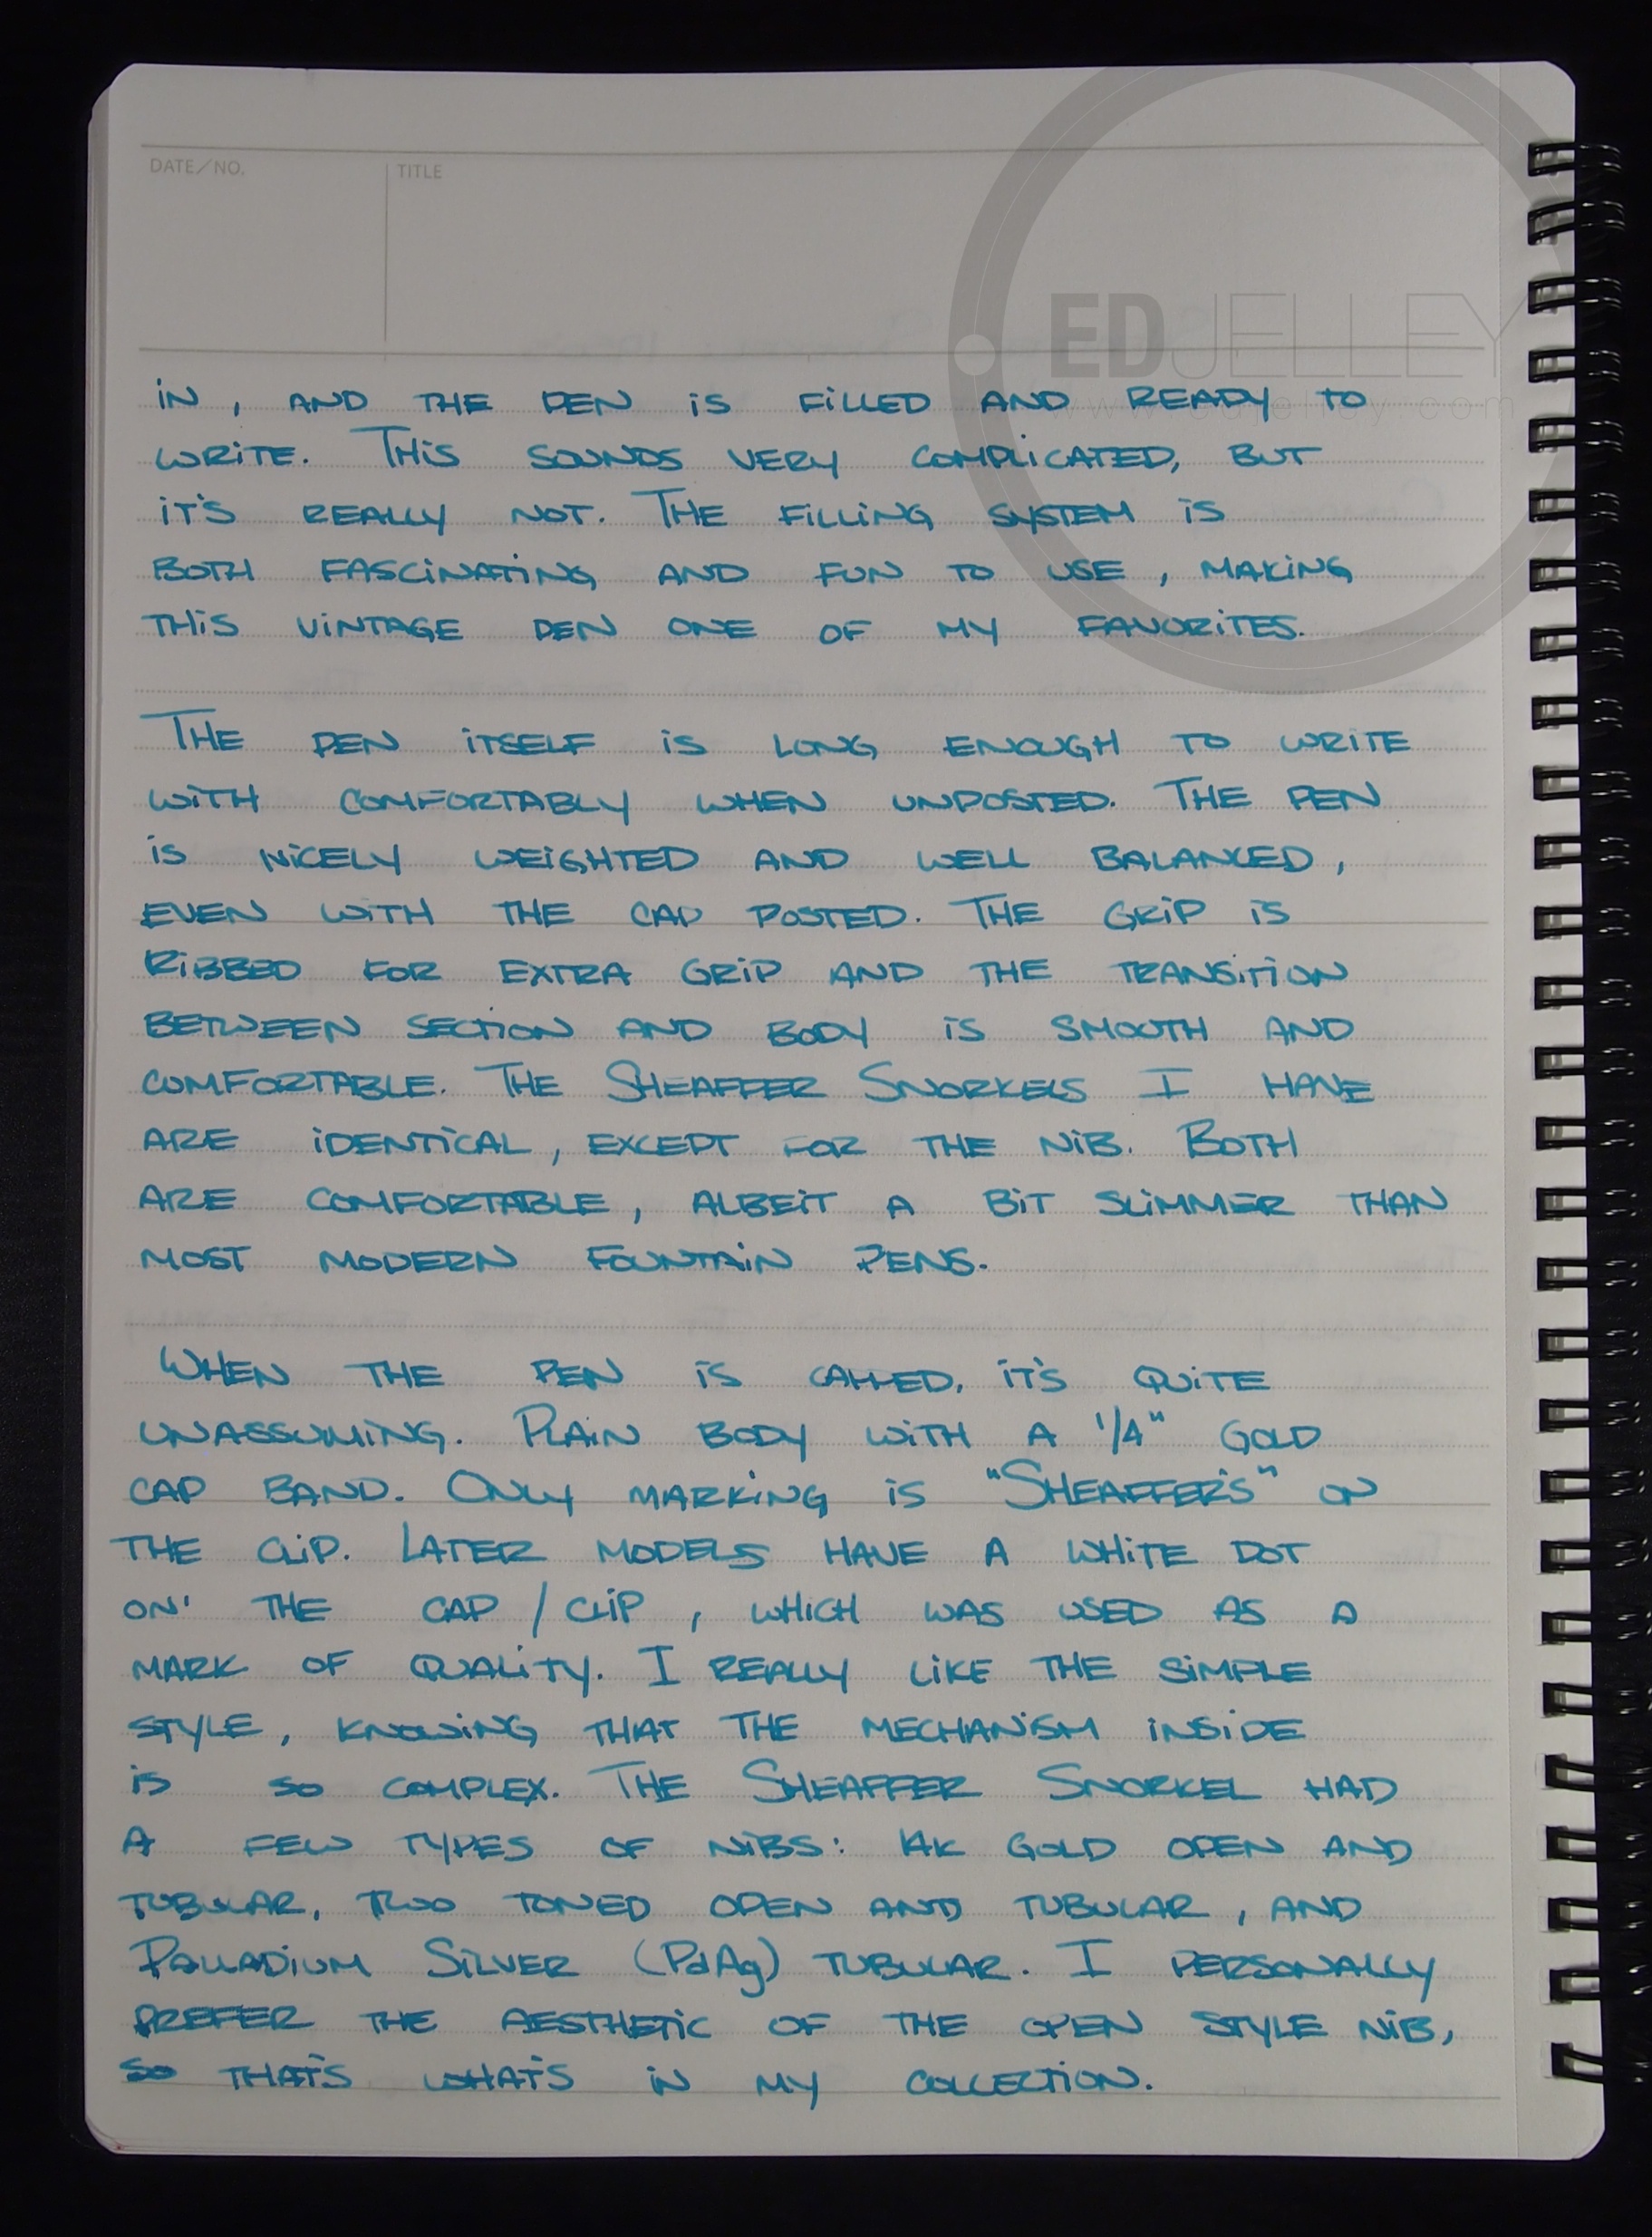 DATE/NO.
TITLE
EDJELLEY
www.edjelley.com
iN, AND THE PEN iS FiLLED AND READY TO
WRiTE. THiS SOUNDS VERY COMPLiCATED, BUT
iT'S REALLY NOT. THE FiLLiNG SYSTEM iS
BOTH FASCiNATiNG AND FUN TO USE, MAKiNG
THiS ViNTAGE PEN ONE OF MY FAVORiTES.
THE PEN iTSELF iS LONG ENOUGH TO WRiTE
WiTH COMFORTABLY WHEN UNPOSTED. THE PEN
iS NiCELY WEiGHTED AND WELL BALANCED,
EVEN WiTH THE CAP POSTED. THE GRiP iS
RiBBED FOR EXTRA GRiP AND THE TRANSiTiON
BETWEEN SECTiON AND BODY iS SMOOTH AND
COMFORTABLE. THE SHEAFFER SNORKELS I HAVE
ARE iDENTiCAL, EXCEPT FOR THE NiB. BOTH
ARE COMFORTABLE, ALBEiT A BiT SLiMMER THAN
MOST MODERN FOUNTAiN PENS.
WHEN THE PEN iS CAPPED, iT'S QUiTE
UNASSUMiNG. PLAiN BODY WiTH A 1/4" GOLD
CAP BAND. ONLY MARKiNG iS "SHEAFFER'S" ON
THE CLiP. LATER MODELS HAVE A WHiTE DOT
ON THE CAP / CLiP, WHiCH WAS USED AS A
MARK OF QUALiTY. I REALLY LiKE THE SiMPLE
STYLE, KNOWiNG THAT THE MECHANiSM iNSiDE
iS SO COMPLEX. THE SHEAFFER SNORKEL HAD
A FEW TYPES OF NiBS: 14K GOLD OPEN AND
TUBULAR, TWO TONED OPEN AND TUBULAR, AND
PALLADiUM SiLVER (PdAg) TUBULAR. I PERSONALLY
PREFER THE AESTHETiC OF THE OPEN STYLE NiB,
SO THAT'S WHAT'S iN MY COLLECTiON.